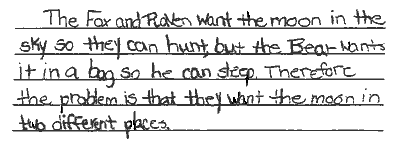 The Fox and Raven want the moon in the
sky so they can hunt, but the Bear wants
it in a bag so he can sleep. Therefore
the problem is that they want the moon in
two different places.